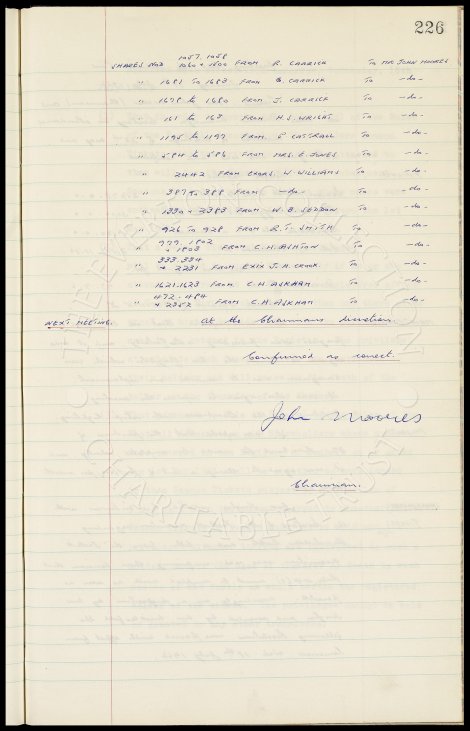 226
1057. 1058
SHARES NOS 1060 & 1500 FROM R. CARRICK TO MR JOHN MOORES
" 1681 to 1683 FROM B. CARRICK TO -do-
" 1678 to 1680 FROM J. CARRICK TO -do-
" 161 to 163 FROM H.S. WRIGHT TO -do-
" 1195 to 1197 FROM E CATTRALL TO -do-
" 584 to 586 FROM MRS. E. JONES TO -do-
" 2442 FROM EXORS. W. WILLIAMS TO -do-
" 387 & 388 FROM -do- TO -do-
" 1330 & 2383 FROM W. B. SEDDON TO -do-
" 926 to 928 FROM R.T. SMITH TO -do-
" 999. 1802
& 1803 FROM C.H. ASHTON TO -do-
" 333.334
& 2231 FROM EXIX J.H. CROOK TO -do-
" 1621-1623 FROM C.H. ASKHAM TO -do-
" 472-484
& 2352 FROM C.H. ASKHAM TO -do-
NEXT MEETING. at the Chairmans direction.
Confirmed as correct.
John Moores
Chairman.
CHARITABLE TRUST